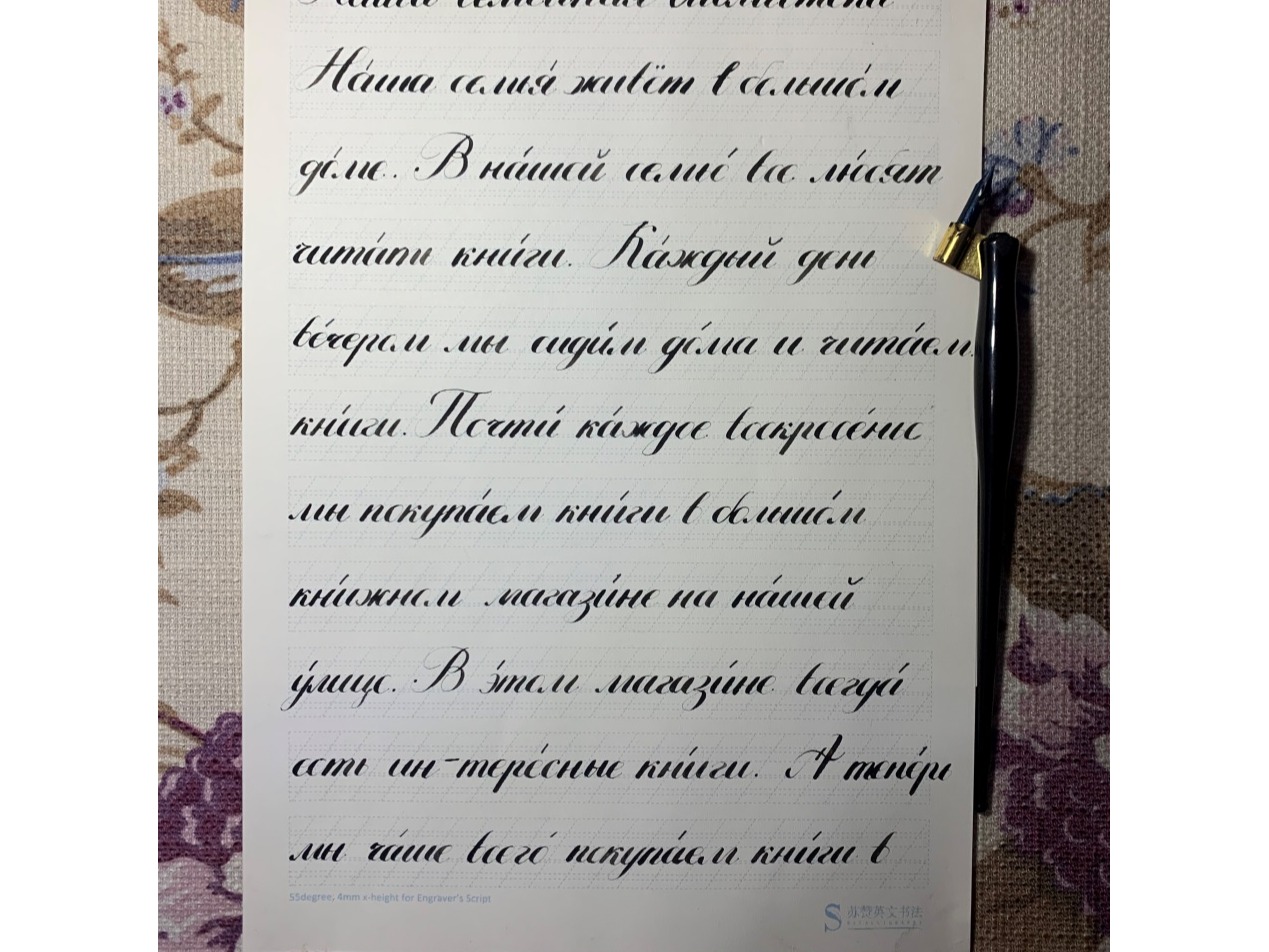 Наша семейная библиотека
На́ша семья́ живёт в большо́м
до́ме. В на́шей семье́ все лю́бят
чита́ть кни́ги. Ка́ждый день
ве́чером мы сиди́м до́ма и чита́ем
кни́ги. Почти́ ка́ждое воскресе́нье
мы покупа́ем кни́ги в большо́м
кни́жном магази́не на на́шей
у́лице. В э́том магази́не всегда́
есть ин-тере́сные кни́ги. А тепе́рь
мы ча́ще всего́ покупа́ем кни́ги в
55degree, 4mm x-height for Engraver's Script
S 苏赞英文书法